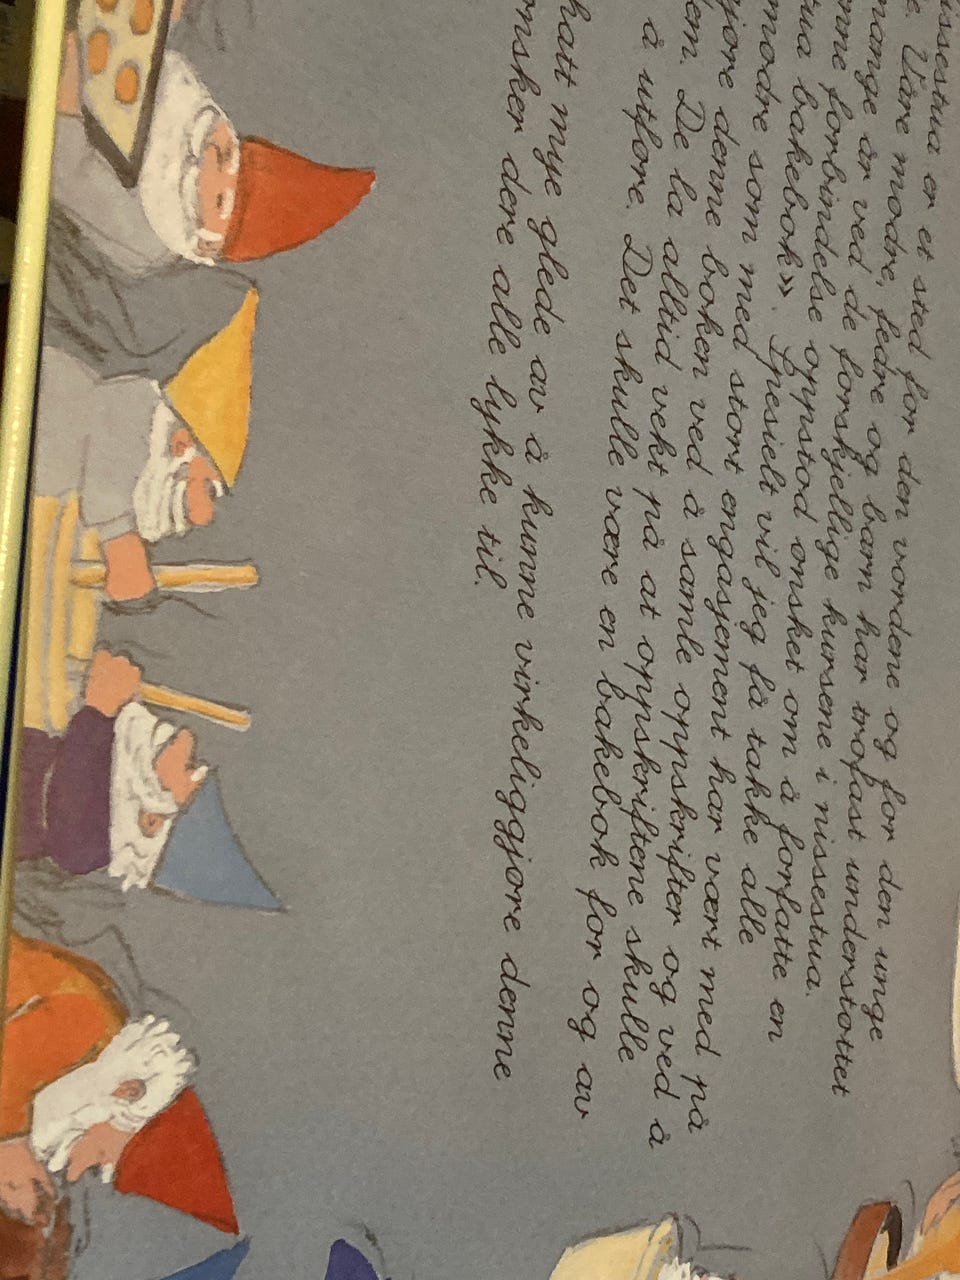 er et sted for den vordene og for den unge
Våre mødre, fedre og barn har trofast understøttet
år ved de forskjellige kursene i nissestua.
forbindelse oppstod ønsket om å forfatte en
bakebok». Spesielt vil jeg få takke alle
mødre som med stort engasjement har vært med på
denne boken ved å samle oppskrifter og ved å
De la alltid vekt på at oppskriftene skulle
å utføre. Det skulle være en bakebok for og av
hatt mye glede av å kunne virkeliggjøre denne
ønsker dere alle lykke til.